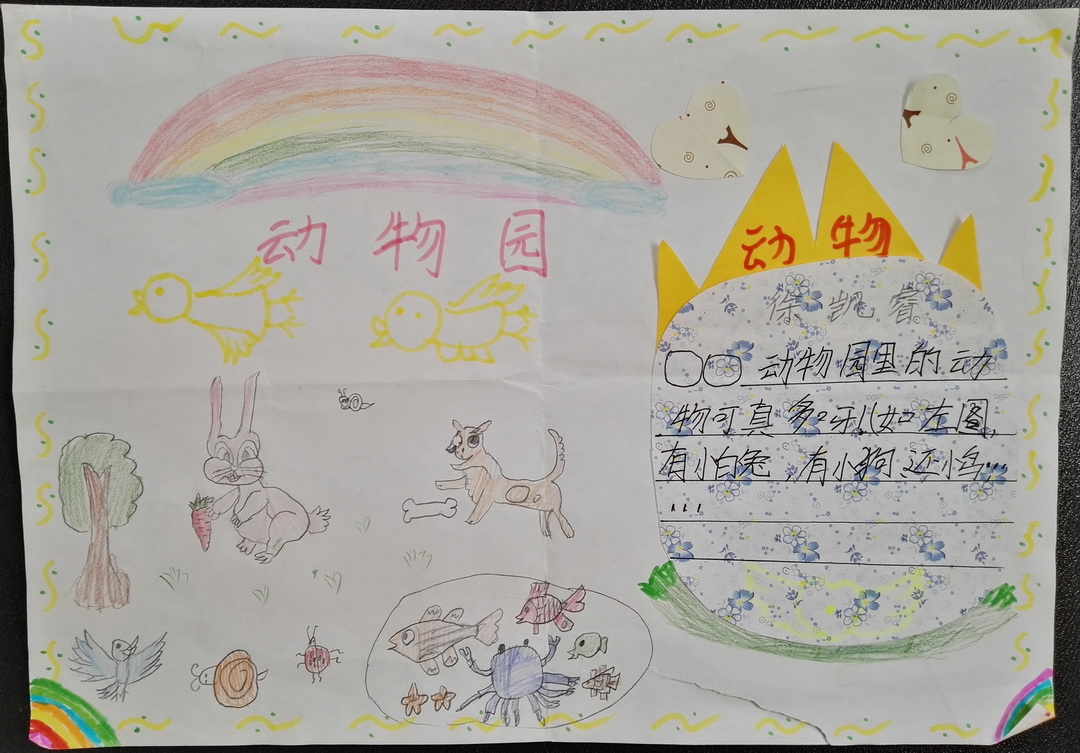 动物园
动物
徐凯睿
○○动物园里的动
物可真多呀!(如左图,
有小白兔,有小狗还小鸟...
...